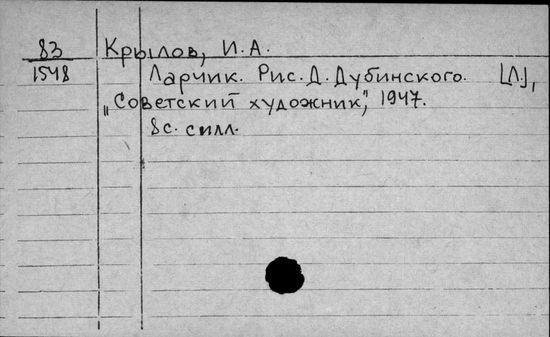 83 Крылов, И.А.
1548 Ларчик. Рис. Д. Дубинского. [Л.],
„Советский художник", 1947.
8с. с илл.